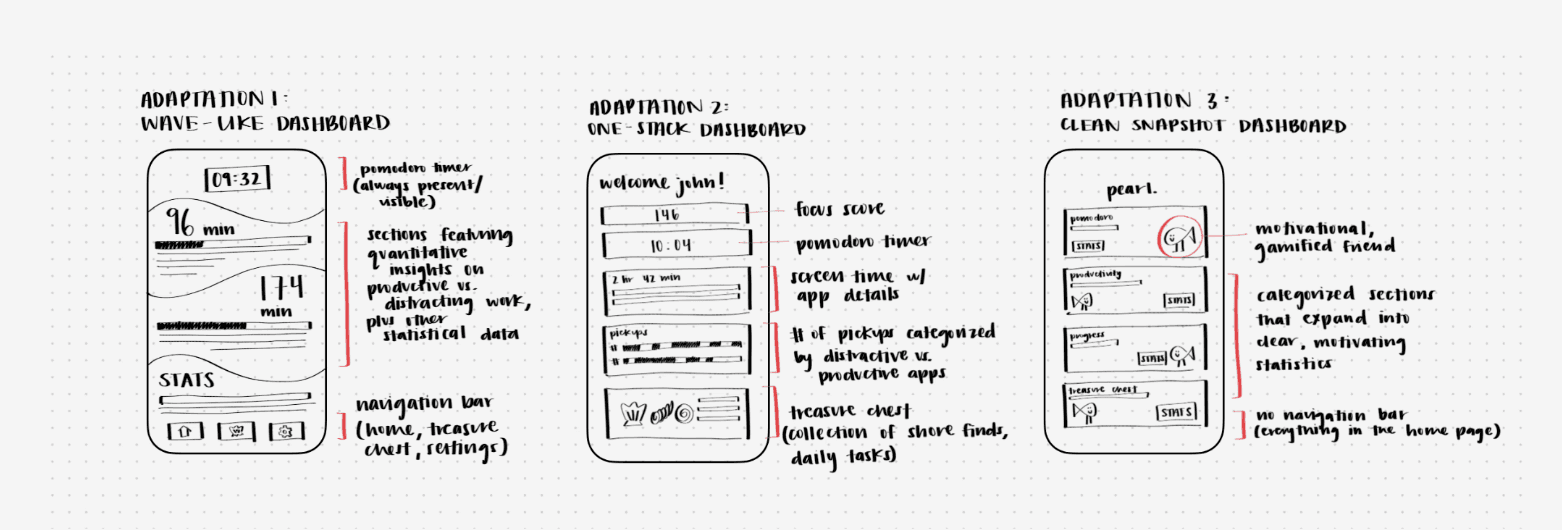 ADAPTATION 1:
WAVE-LIKE DASHBOARD
09:32
96 min
174
min
STATS
pomodoro timer
(always present/
visible)
sections featuring
quantitative
insights on
productive vs.
distracting work,
plus other
statistical data
navigation bar
(home, treasure
chest, settings)
ADAPTATION 2:
ONE-STACK DASHBOARD
welcome john!
146
10:04
2 hr 42 min
pickups
#
#
focus score
pomodoro timer
screen time w/
app details
# of pickups categorized
by distractive vs.
productive apps
treasure chest
(collection of shore finds,
daily tasks)
ADAPTATION 3:
CLEAN SNAPSHOT DASHBOARD
pearl.
pomodoro
STATS
productivity
STATS
progress
STATS
treasure chest
STATS
motivational,
gamified friend
categorized sections
that expand into
clear, motivating
statistics
no navigation bar
(everything in the home page)